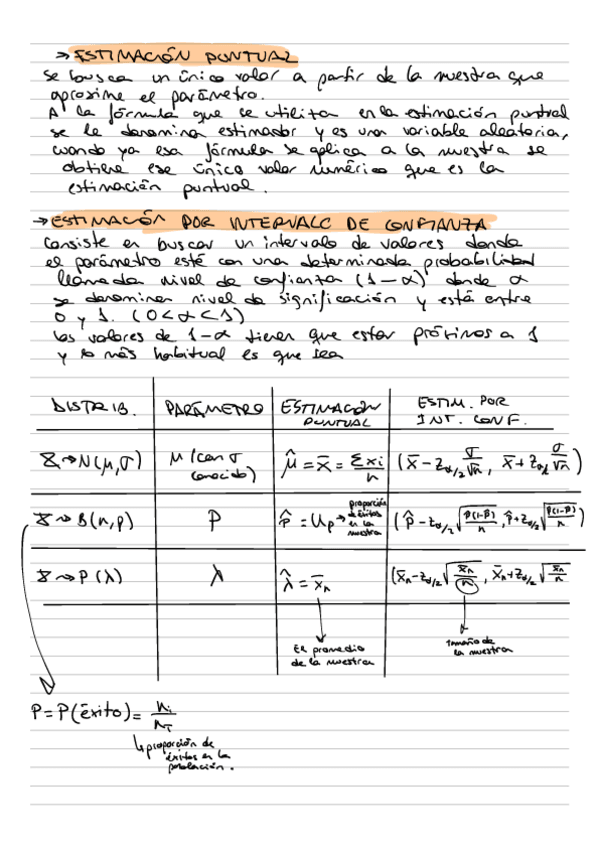 → ESTIMACIÓN PUNTUAL
Se busca un único valor a partir de la muestra que
aproxime el parámetro.
A la fórmula que se utiliza en la estimación puntual
se le denomina estimador y es una variable aleatoria,
cuando ya esa fórmula se aplica a la muestra se
obtiene ese único valor numérico que es la
estimación puntual.
→ ESTIMACIÓN POR INTERVALO DE CONFIANZA
Consiste en buscar un intervalo de valores donde
el parámetro esté con una determinada probabilidad
llamada nivel de confianza (1-α) donde α
se denomina nivel de significación y está entre
0 y 1. (0<α<1)
Los valores de 1-α tienen que estar próximos a 1
y lo más habitual es que sea
DISTRIB. PARÁMETRO ESTIMACIÓN PUNTUAL ESTIM. POR INT. CONF.
X → N(μ,σ) μ (con σ conocido) μ̂ = x̄ = Σxi/n (x̄ - Zα/2 σ/√n, x̄ + Zα/2 σ/√n)
X → B(n,p) P p̂ = μp → proporción de éxitos en la muestra (p̂ - Zα/2 √(p̂(1-p̂)/n), p̂ + Zα/2 √(p̂(1-p̂)/n))
X → P(λ) λ λ̂ = x̄n (x̄n - Zα/2 √(x̄n/n), x̄n + Zα/2 √(x̄n/n))
El promedio
de la muestra
tamaño de
la muestra
P = P(éxito) = ni/nT
↳ proporción de
éxitos en la
población.